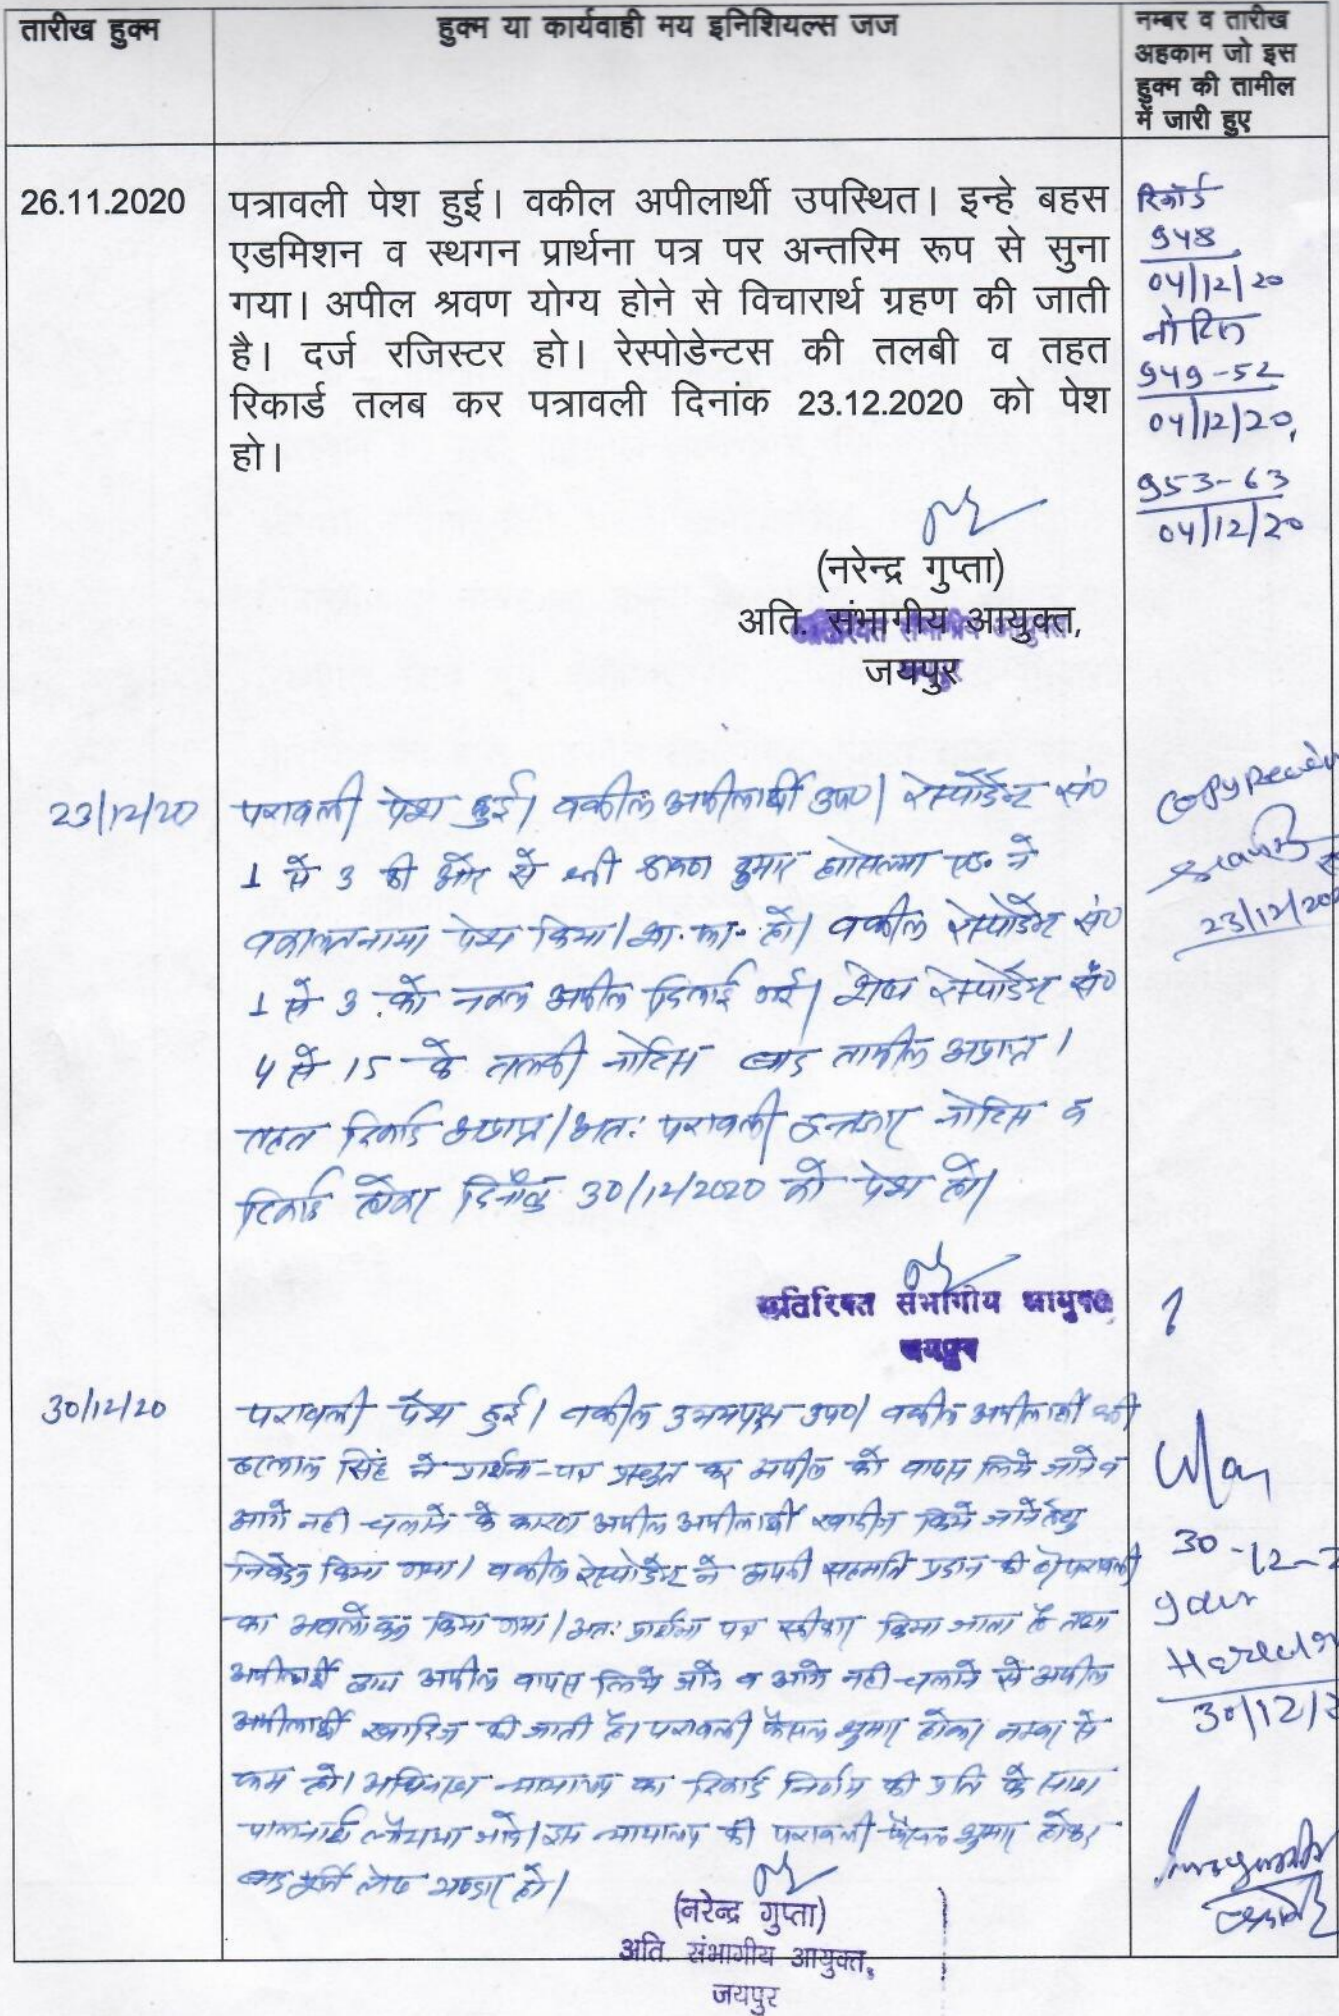 तारीख हुक्म
हुक्म या कार्यवाही मय इनिशियल्स जज
नम्बर व तारीख
अहकाम जो इस
हुक्म की तामील
में जारी हुए
26.11.2020
पत्रावली पेश हुई। वकील अपीलार्थी उपस्थित। इन्हे बहस
एडमिशन व स्थगन प्रार्थना पत्र पर अन्तरिम रूप से सुना
गया। अपील श्रवण योग्य होने से विचारार्थ ग्रहण की जाती
है। दर्ज रजिस्टर हो। रेस्पोडेन्टस की तलबी व तहत
रिकार्ड तलब कर पत्रावली दिनांक 23.12.2020 को पेश
हो।
रिकॉर्ड
948
04/12/20
नोटिस
949-52
04/12/20
953-63
04/12/20
(नरेन्द्र गुप्ता)
अति. संभागीय आयुक्त,
जयपुर
23/12/20
पत्रावली पेश हुई। वकील अपीलार्थी उप०। रेस्पोंडेन्ट सं०
1 से 3 की ओर से श्री कुमार एड. ने
वकालतनामा पेश किया। शा. फा. हो। वकील रेस्पोंडेन्ट सं०
1 से 3 को नकल अपील दिलाई गई। शेष रेस्पोंडेन्ट सं०
4 से 15 के तलबी नोटिस बाद तामील अप्राप्त।
तहत रिकार्ड अप्राप्त। अत: पत्रावली इन्तजार नोटिस व
रिकार्ड होकर दिनाँक 30/12/2020 को पेश हो।
Copy Received
23/12/20
अतिरिक्त संभागीय आयुक्त
जयपुर
30/12/20
पत्रावली पेश हुई। वकील उभयपक्ष उप०। वकील अपीलार्थी श्री
सिंह ने प्रार्थना-पत्र प्रस्तुत कर अपील को वापस लिये जाने व
आगे नही चलाने के कारण अपील अपीलार्थी खारीज किये जाने हेतु
निवेदन किया गया। वकील रेस्पोंडेन्ट ने अपनी सहमति प्रदान की है। पत्रावली
का अवलोकन किया गया। अत: प्रार्थना पत्र स्वीकार किया जाता है तथा
अपीलार्थी द्वारा अपील वापस लिये जाने व आगे नही चलाने से अपील
अपीलार्थी खारिज की जाती है। पत्रावली फैसल शुमार होकर नम्बर से
कम हो। अधिनस्थ न्यायालय का रिकार्ड निर्णय की प्रति के साथ
पालनार्थ लौटाया जावे। इस न्यायालय की पत्रावली फैसल शुमार होकर
बाद पूर्ति लेख भण्डार हो।
30-12-2
30/12/2
(नरेन्द्र गुप्ता)
अति. संभागीय आयुक्त,
जयपुर